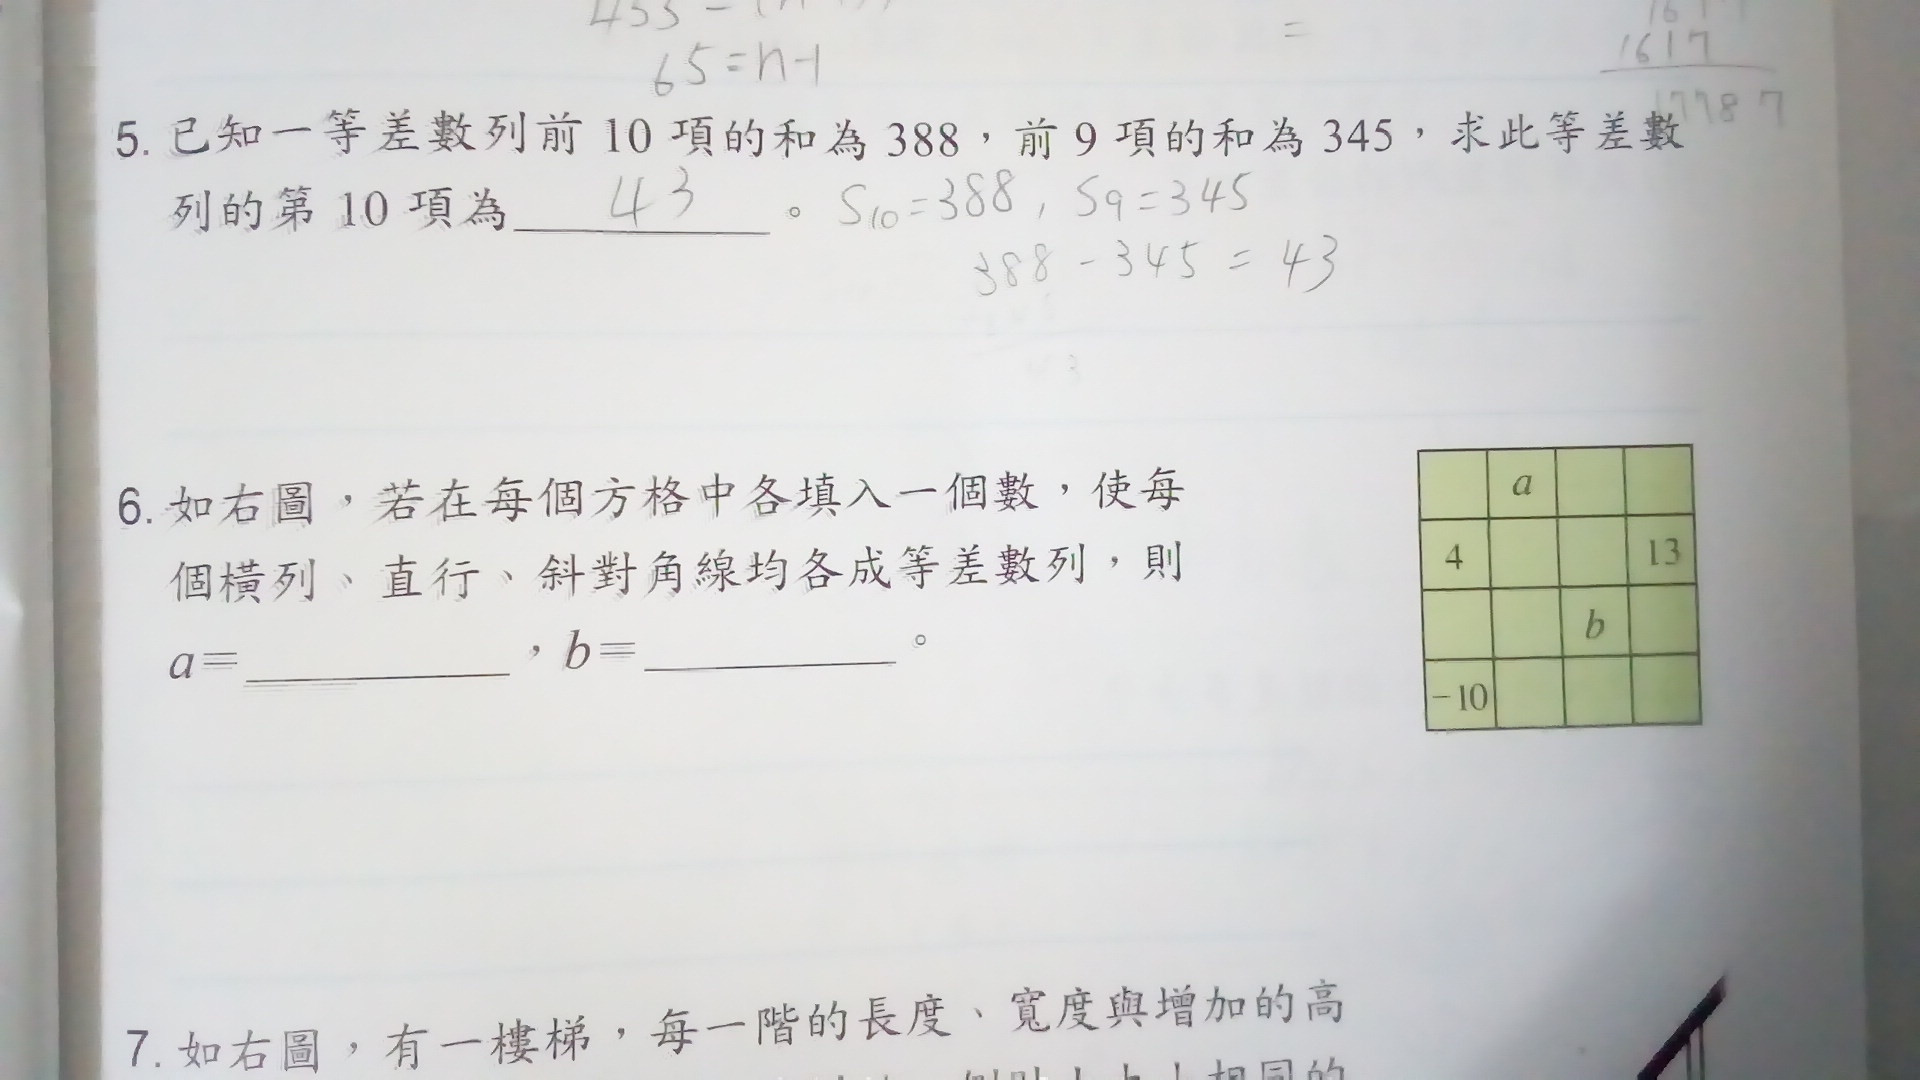 65=n-1
=
1617
17787
5. 已知一等差數列前 10 項的和為 388，前 9 項的和為 345，求此等差數
列的第 10 項為 43 。 S10=388, S9=345
388-345=43
6. 如右圖，若在每個方格中各填入一個數，使每
個橫列、直行、斜對角線均各成等差數列，則
a= ，b= 。
a
4 13
b
-10
7. 如右圖，有一樓梯，每一階的長度、寬度與增加的高
相同的